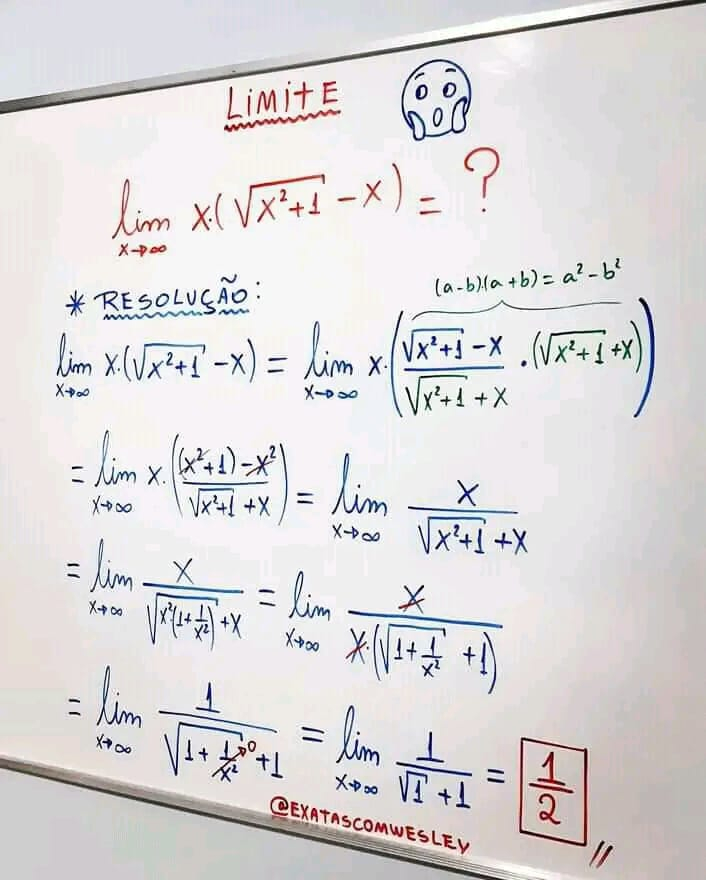 LIMITE
lim x→∞ x·(√(x²+1) - x) = ?
* RESOLUÇÃO:
(a-b)·(a+b) = a² - b²
lim x→∞ x·(√(x²+1) - x) = lim x→∞ x·((√(x²+1) - x)/(√(x²+1) + x) · (√(x²+1) + x))
= lim x→∞ x·(((x²+1) - x²)/(√(x²+1) + x)) = lim x→∞ x/(√(x²+1) + x)
= lim x→∞ x/(√(x²(1+1/x²)) + x) = lim x→∞ x/(x·(√(1+1/x²) + 1))
= lim x→∞ 1/(√(1+1/x²→0) + 1) = lim x→∞ 1/(√1 + 1) = 1/2 //
@EXATASCOMWESLEY